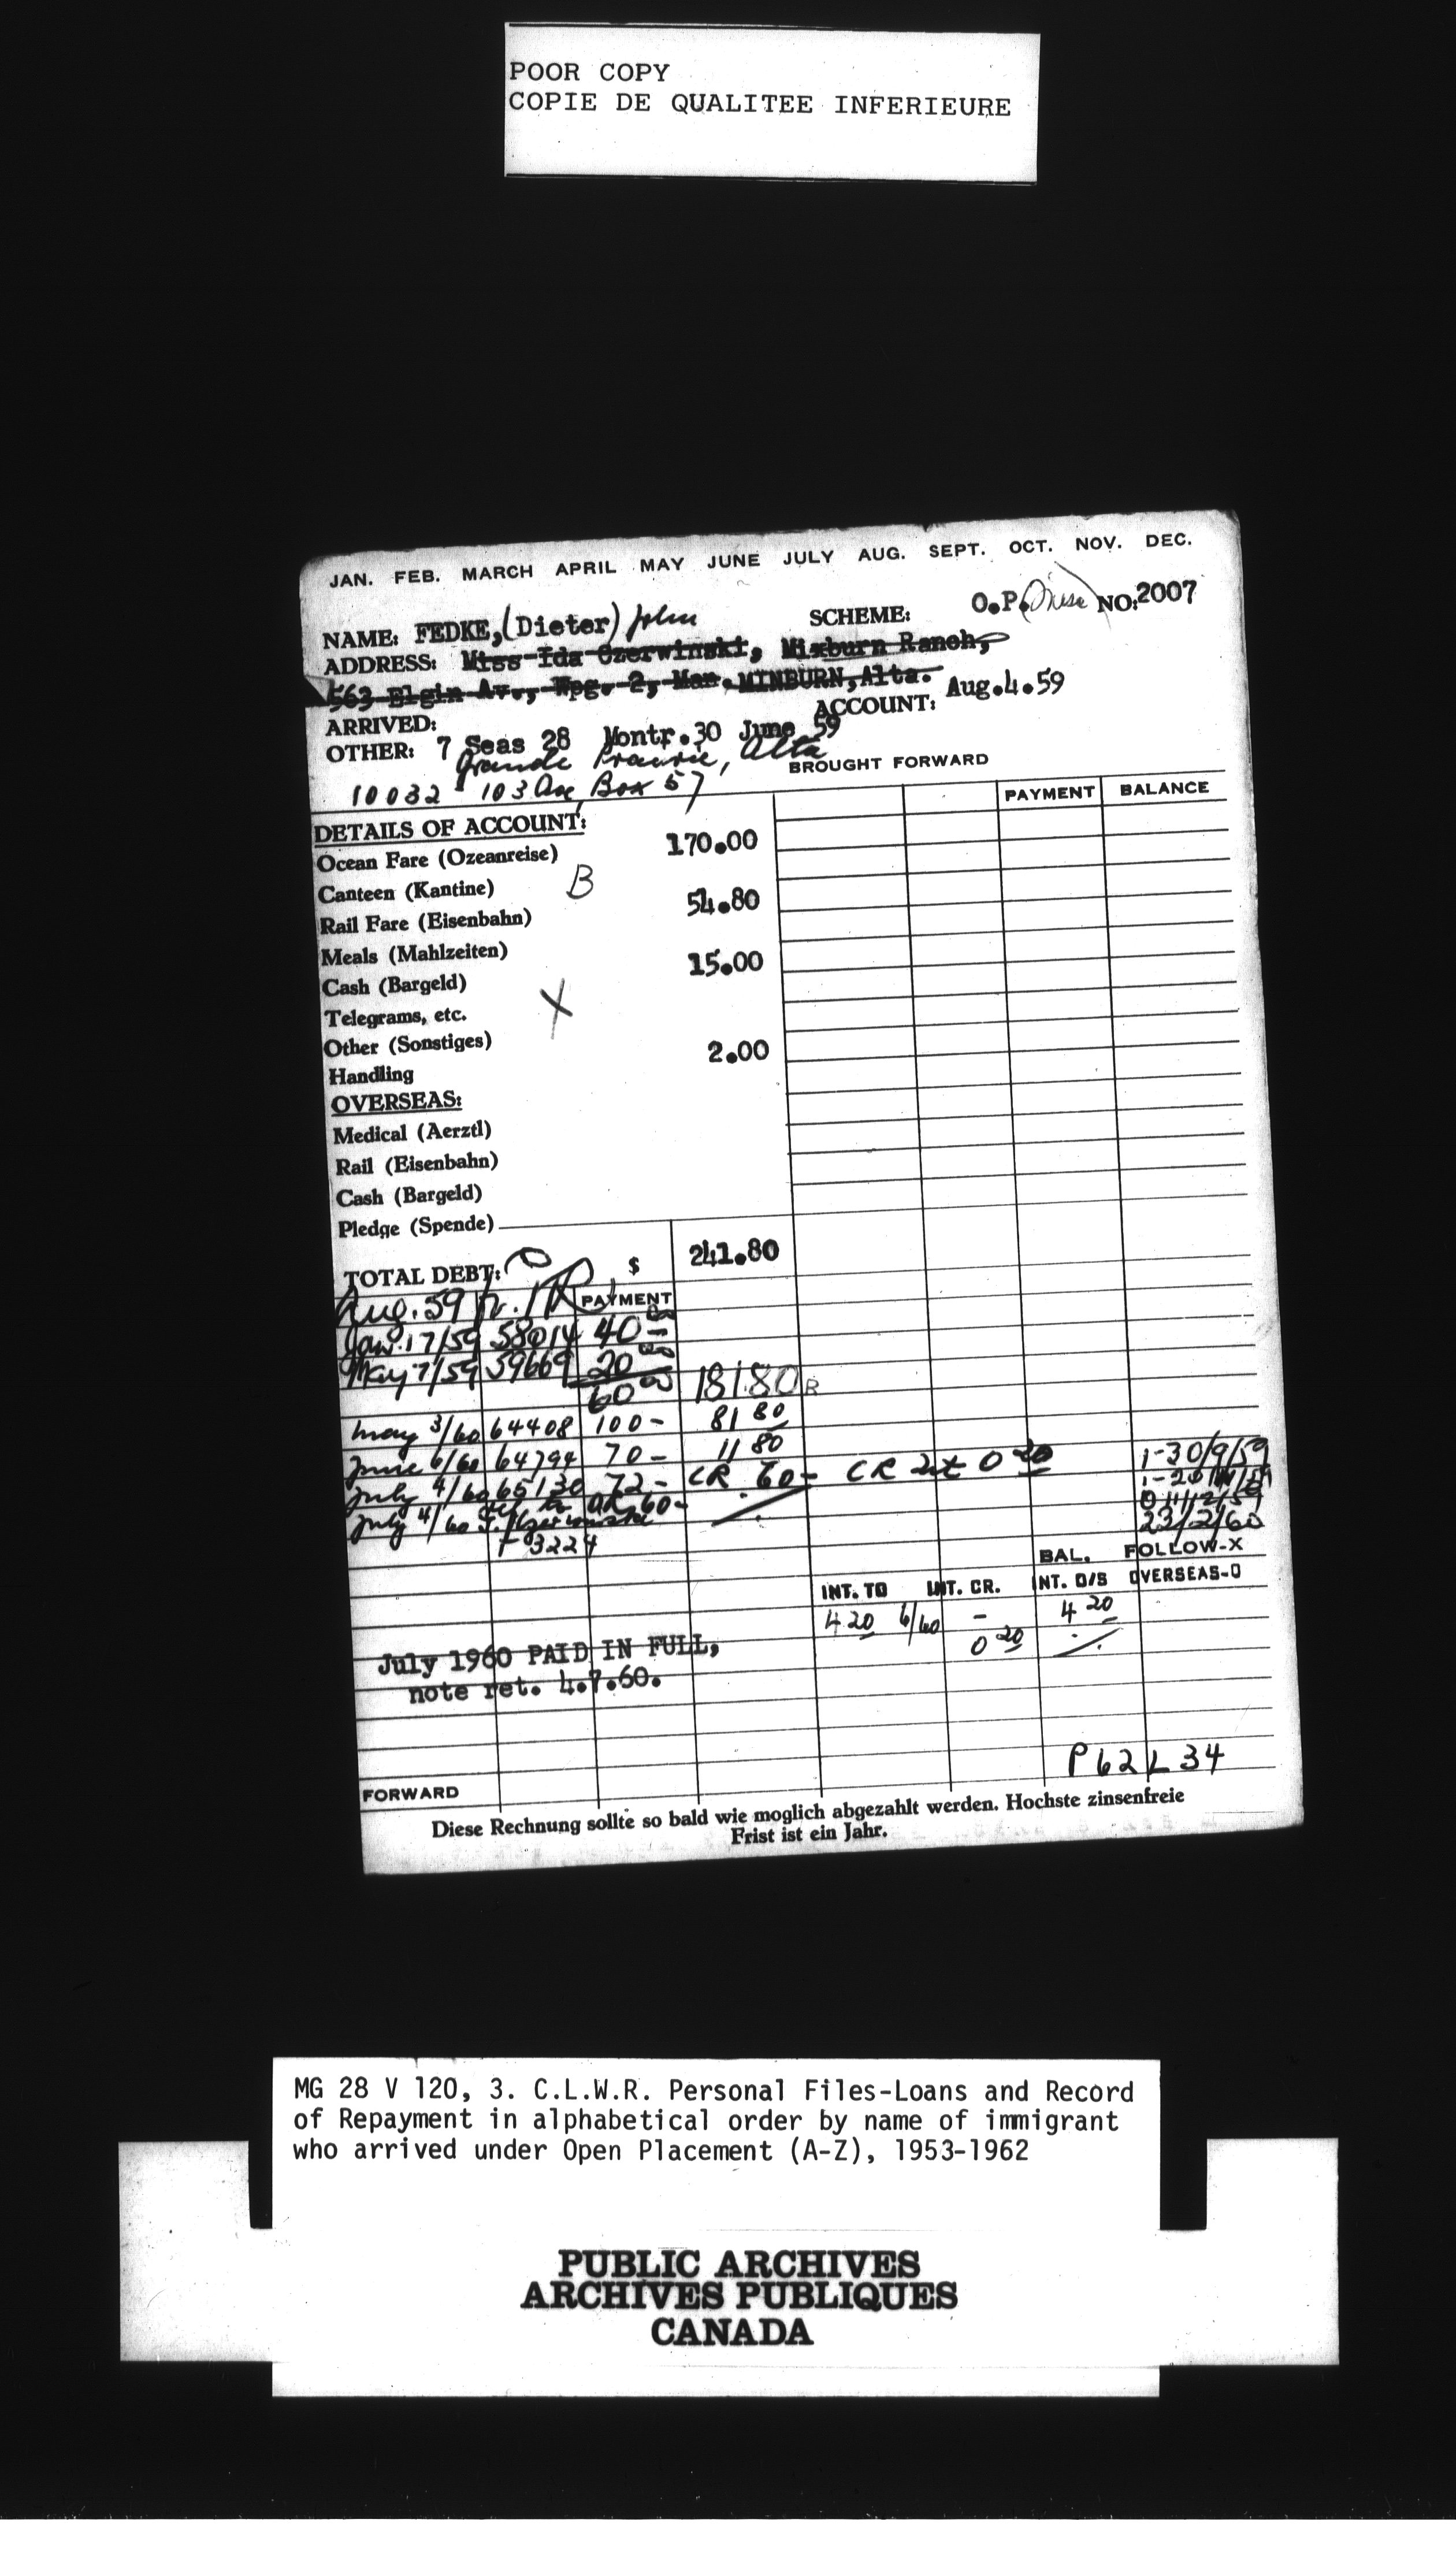 POOR COPY
COPIE DE QUALITEE INFERIEURE
JAN. FEB. MARCH APRIL MAY JUNE JULY AUG. SEPT. OCT. NOV. DEC.
NAME: FEDKE, (Dieter) John SCHEME: O.P. NO: 2007
ADDRESS: Miss Ida Czerwinski, Minburn Ranch,
563 Elgin Av., Wpg. 2, Man. MINBURN, Alta.
ARRIVED: ACCOUNT: Aug.4.59
OTHER: 7 Seas 28 Montr.30 June 59
Grande Prairie, Alta
10032 - 103 Ave, Box 57
BROUGHT FORWARD
PAYMENT BALANCE
DETAILS OF ACCOUNT:
Ocean Fare (Ozeanreise) 170.00
Canteen (Kantine) B
Rail Fare (Eisenbahn) 54.80
Meals (Mahlzeiten)
Cash (Bargeld) 15.00
Telegrams, etc. X
Other (Sonstiges)
Handling 2.00
OVERSEAS:
Medical (Aerztl)
Rail (Eisenbahn)
Cash (Bargeld)
Pledge (Spende)
TOTAL DEBT: $ 241.80
Aug. 59 PAYMENT
Jan. 17/59 58014 40 -
May 7/59 59669 20 00
60 00 181.80
May 3/60 64408 100 - 81 80
June 6/60 64794 70 - 11 80 1-30/9/59
July 4/60 65130 72 - CR 60 - CR Int 0 20
July 4/60 60 -
3224 23/2/60
BAL. FOLLOW-X
INT. TO INT. CR. INT. O/S OVERSEAS-O
4 20 6/60 - 4 20
0 20
July 1960 PAID IN FULL,
note ret. 4.7.60.
P62 L 34
FORWARD
Diese Rechnung sollte so bald wie moglich abgezahlt werden. Hochste zinsenfreie
Frist ist ein Jahr.
MG 28 V 120, 3. C.L.W.R. Personal Files-Loans and Record
of Repayment in alphabetical order by name of immigrant
who arrived under Open Placement (A-Z), 1953-1962
PUBLIC ARCHIVES
ARCHIVES PUBLIQUES
CANADA